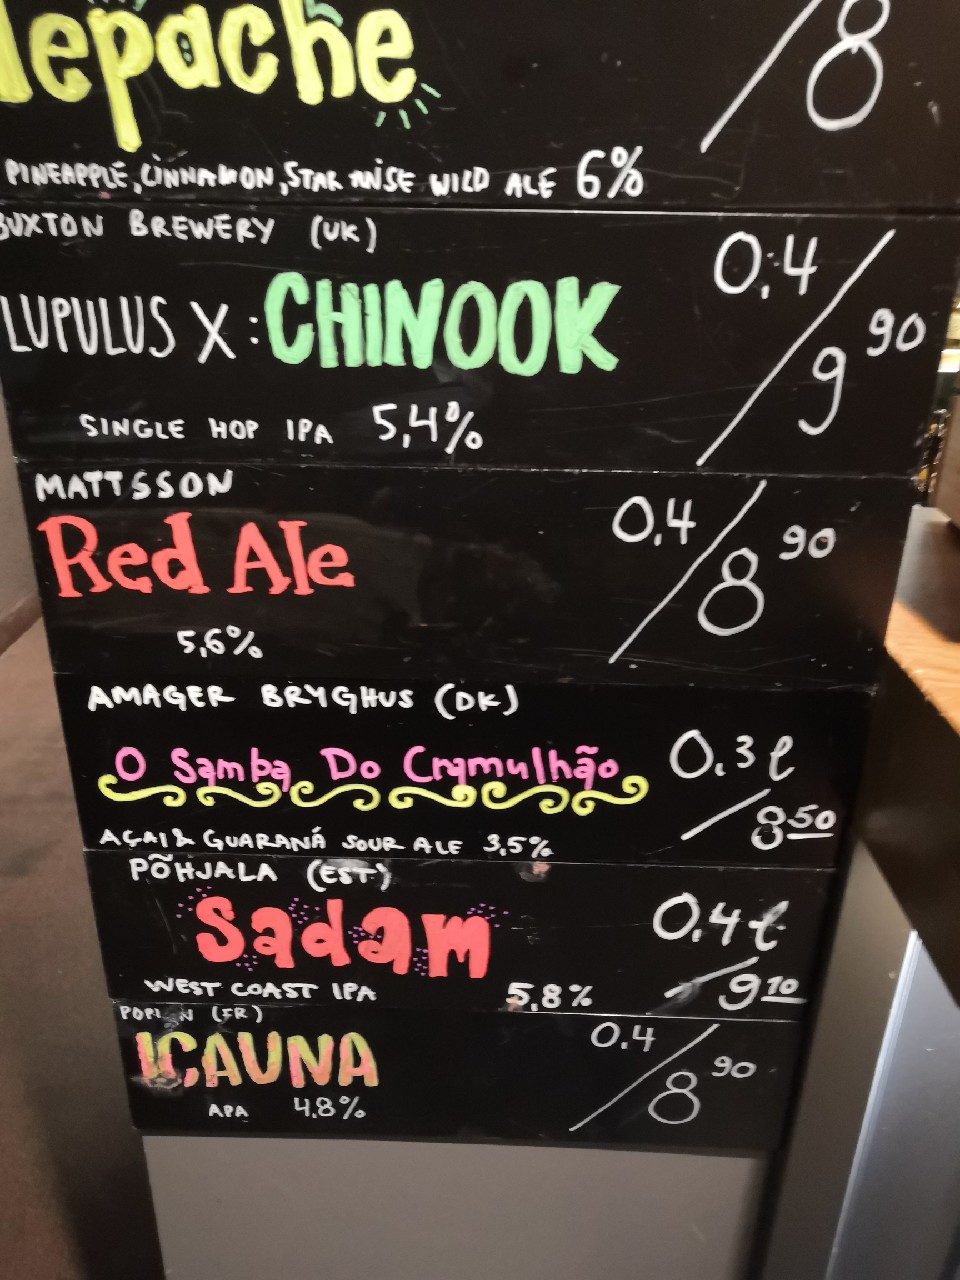 epache
/8
PINEAPPLE, CINNAMON, STAR ANISE WILD ALE 6%
BUXTON BREWERY (UK)
LUPULUS X: CHINOOK
0,4/9 90
SINGLE HOP IPA 5,4%
MATTSSON
Red Ale
0,4/8 90
5,6%
AMAGER BRYGHUS (DK)
O Samba Do Cramulhão
0.3l/8 50
AÇAI & GUARANÁ SOUR ALE 3,5%
PÕHJALA (EST)
Sadam
0.4l/9 10
WEST COAST IPA 5,8%
(FR)
ICAUNA
0.4/8 90
APA 4,8%